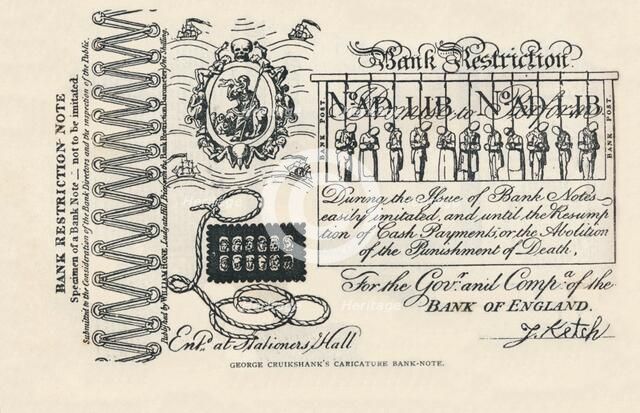 BANK RESTRICTION NOTE
Specimen of a Bank Note — not to be imitated.
Submitted to the Consideration of the Bank Directors and the inspection of the Public.
Bank Restriction
BANK POST
No. AD LIB No. AD LIB
BANK POST
During the Issue of Bank Notes
easily imitated, and until the Resump
tion of Cash Payments, or the Abolition
of the Punishment of Death,
For the Govr. and Compa. of the
BANK OF ENGLAND.
J. Ketch
Entd. at Stationers, Hall
GEORGE CRUIKSHANK'S CARICATURE BANK-NOTE.
Heritage